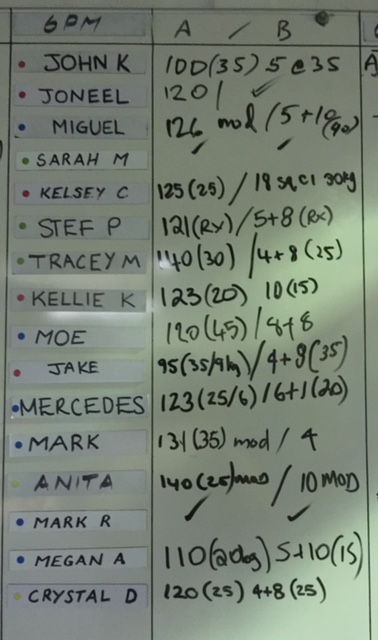 6PM A / B
JOHN K 100(35) 5 @ 35 A
JONEEL 120 / ✓
MIGUEL 126 mod / 5+10(90)
SARAH M ✓ ✓
KELSEY C 125(25) / 18 30kg
STEF P 121(Rx) / 5+8(Rx)
TRACEY M 140(30) / 4+8(25)
KELLIE K 123(20) 10(15)
MOE 120(45) / 8+8
JAKE 95(35/9kg) / 4+8(35)
MERCEDES 123(25/6) / 6+1(20)
MARK 131(35) mod / 4
ANITA 140(25)mod / 10 MOD
MARK R ✓ ✓
MEGAN A 110(20kg) 5+10(15)
CRYSTAL D 120(25) 4+8(25)